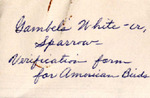 Gambels White-cr.
Sparrow
Verification form
for American Birds